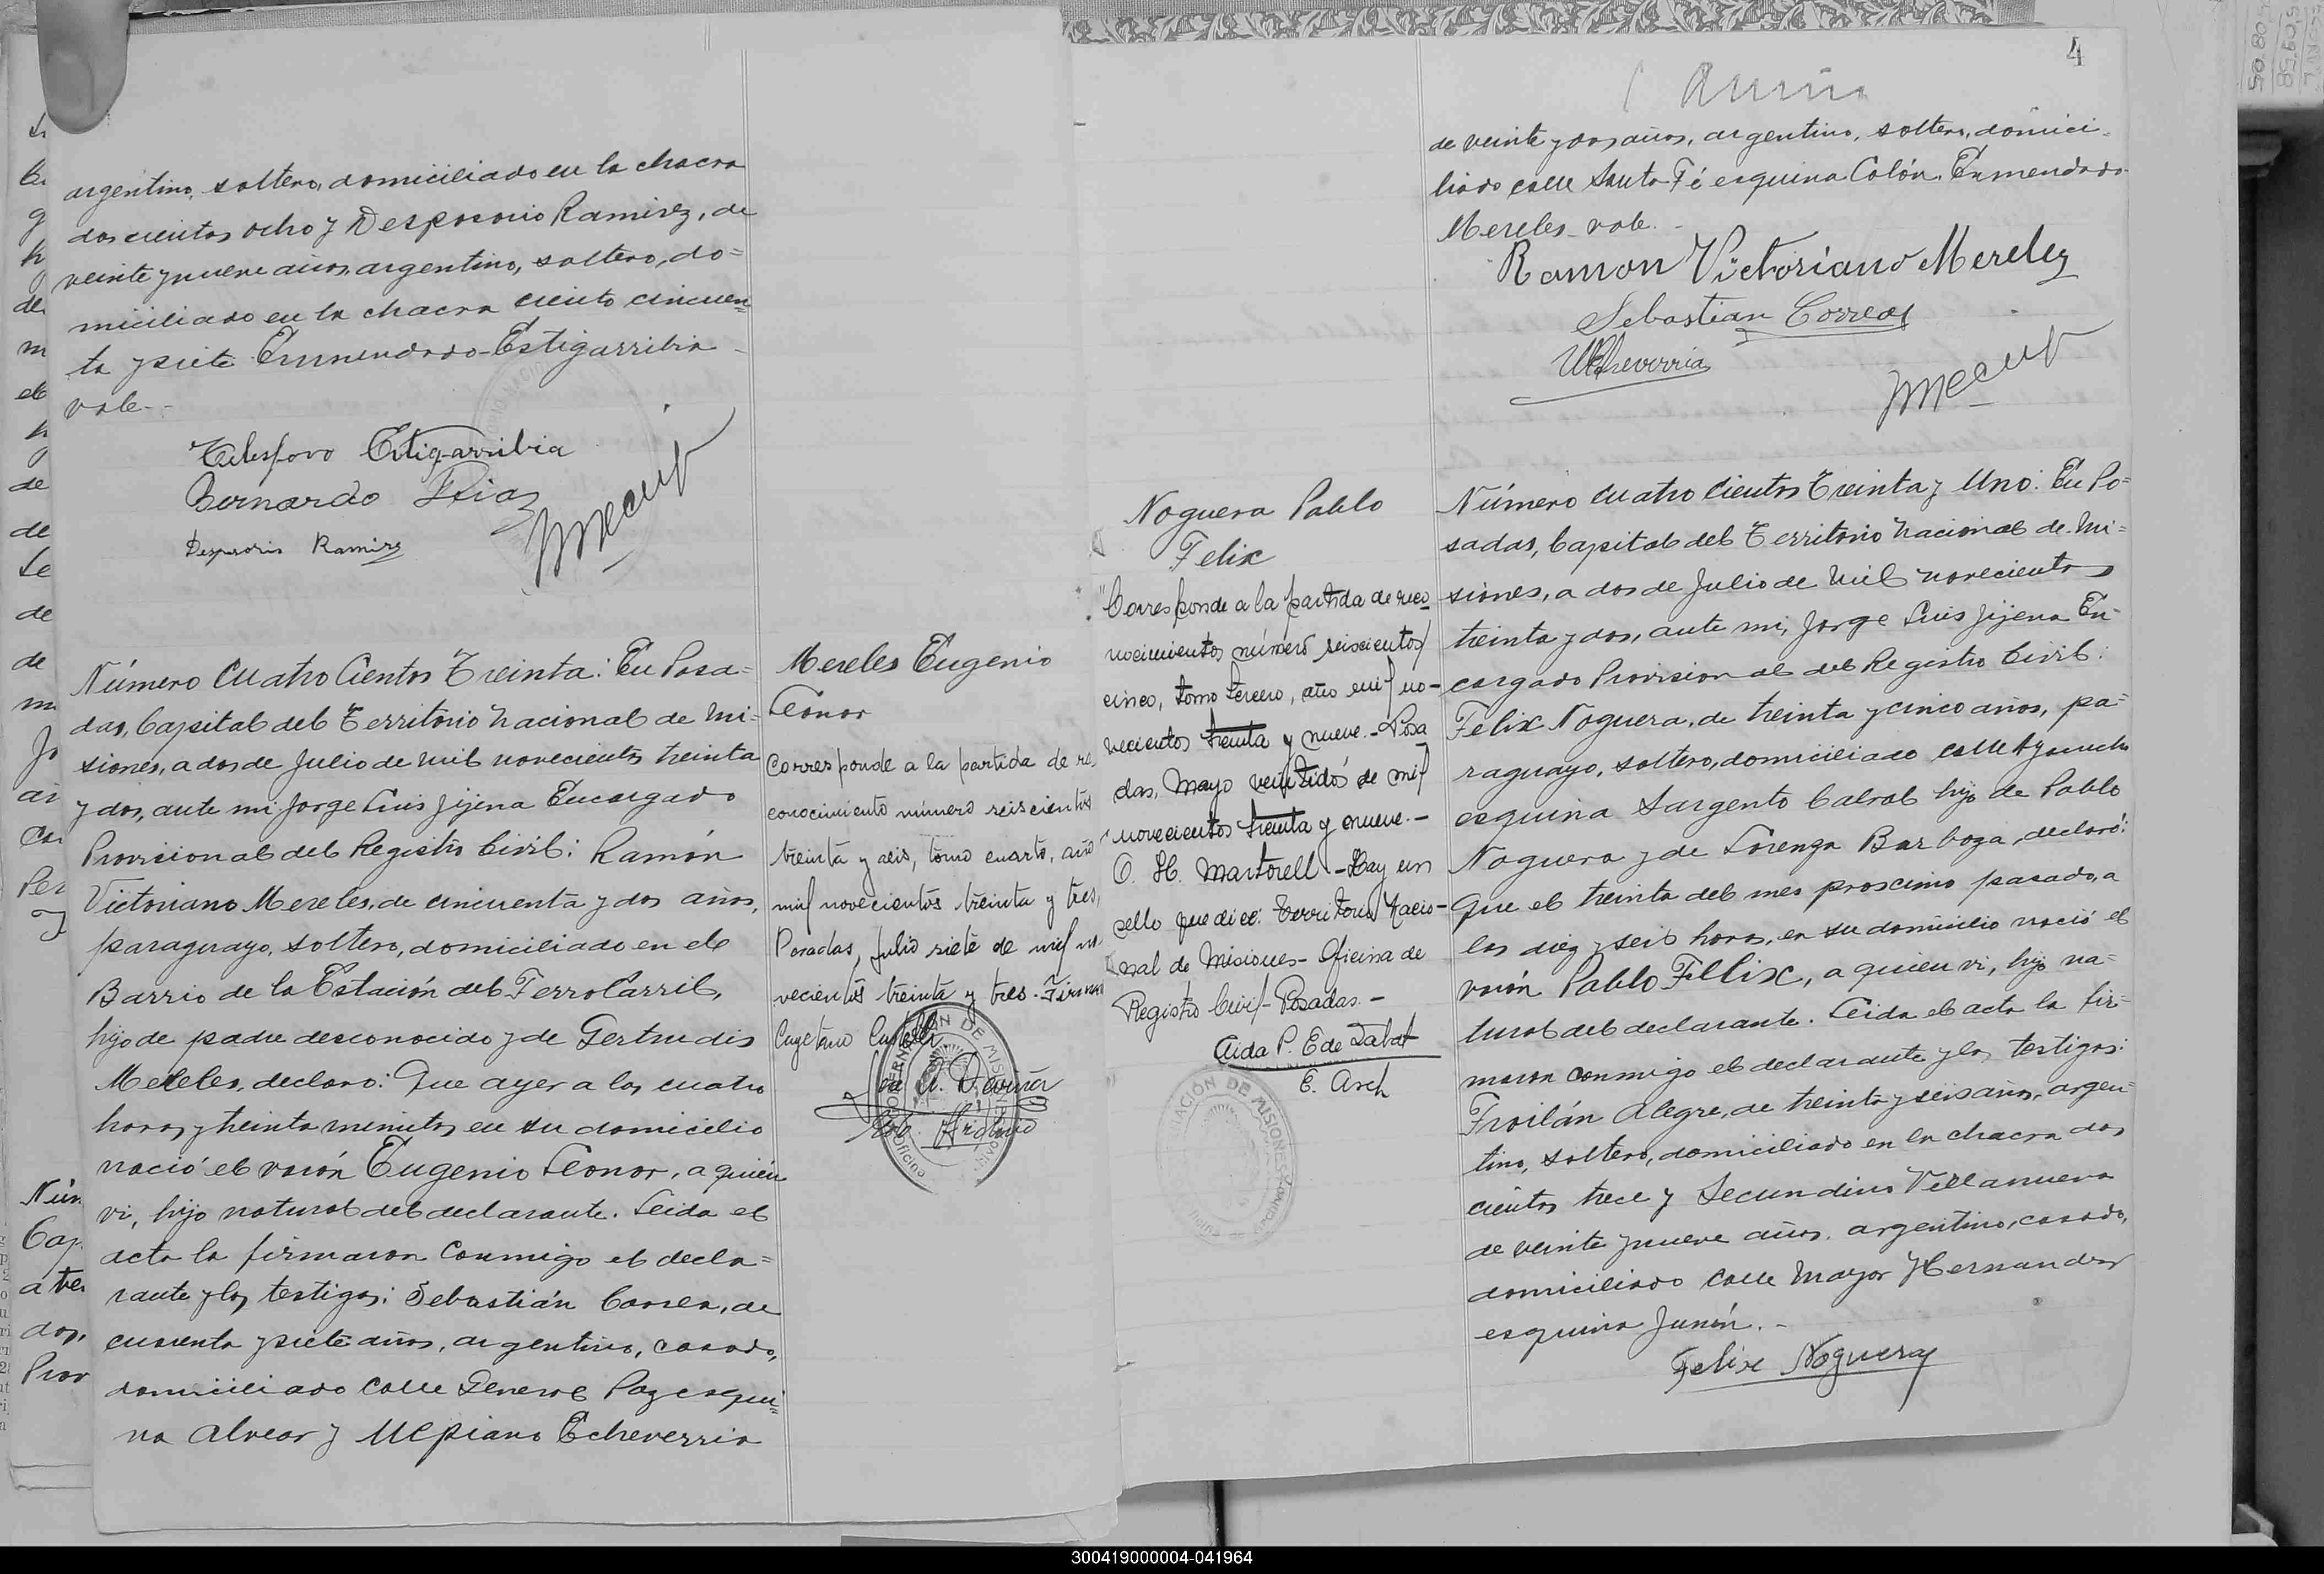 argentino, soltero, domiciliado en la chacra
doscientos ocho y Desposorio Ramirez, de
veinte y nueve años, argentino, soltero, do=
miciliado en la chacra ciento cincuen=
ta y siete Enmendado-Estigarribia
vale.-
Telesforo Estigarribia
Bernardo
Desposorio Ramirez
Número Cuatro Cientos Treinta: En Posa=
das, Capital del Territorio Nacional de Mi=
siones, a dos de Julio de mil novecientos treinta
y dos, ante mi Jorge Luis Jijena Encargado
Provisional del Registro Civil: Ramón
Victoriano Mereles, de cincuenta y dos años,
paraguayo, soltero, domiciliado en el
Barrio de la Estación del Ferro Carril,
hijo de padre desconocido y de Gertrudis
Mereles, declaro: Que ayer a las cuatro
horas y treinta minutos en su domicilio
nació el varón Eugenio Leonor, a quien
vi, hijo natural del declarante. Leida el
acta la firmaron conmigo el decla=
rante y los testigos: Sebastián Correa, de
cuarenta y siete años, argentino, casado,
domiciliado calle General Paz esqui=
na Alvear y Ulpiano Echeverria
Mereles Eugenio
Leonor
Corresponde a la partida de re
conocimiento número seiscientos
treinta y seis, tomo cuarto, año
mil novecientos treinta y tres,
Posadas, Julio siete de mil no
vecientos treinta y tres.-
Cayetano
4
de veinte y dos años, argentino, soltero, domici-
liado calle Santa Fé esquina Colón. Enmendado
Mereles-vale.-
Ramon Victoriano Mereles
Sebastian Correa
UEcheverria
Noguera Pablo
Felix
"Corresponde a la partida de reco
nocimientos número seiscientos
cinco, tomo tercero, año mil no-
vecientos treinta y nueve.- Posa
das, Mayo veintidós de mil
novecientos treinta y nueve.-
O. H. Martorell - Hay un
sello que dice: Territorio Nacio-
nal de Misiones- Oficina de
Registro Civil- Posadas.-
Aida P. E de
E. Arch
GOBERNACIÓN DE MISIONES
Número Cuatro Cientos Treinta y Uno: En Po=
sadas, Capital del Territorio Nacional de Mi=
siones, a dos de Julio de mil novecientos
treinta y dos, ante mi, Jorge Luis Jijena En-
cargado Provisional del Registro Civil:
Felix Noguera, de treinta y cinco años, pa=
raguayo, soltero, domiciliado calle Ayacucho
esquina Sargento Cabral hijo de Pablo
Noguera y de Lorenza Barboza, declaró:
Que el treinta del mes proscimo pasado, a
las diez y seis horas, en su domicilio nació el
varón Pablo Fellix, a quien vi, hijo na=
tural del declarante. Leida el acta la fir=
maron conmigo el declarante y los testigos:
Froilán Alegre, de treinta y seis años, argen=
tino, soltero, domiciliado en la chacra dos
cientos trece y Secundino Villanueva
de veinte y nueve años, argentino, casado,
domiciliado calle Mayor Hernandez
esquina Junín.-
Felix Noguera
300419000004-041964